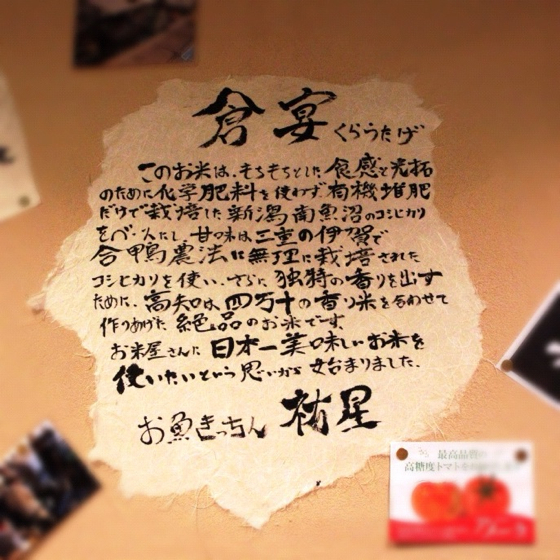 倉宴 くらうたげ
このお米は、もちもちとした食感と光拓
のために化学肥料を使わず有機堆肥
だけで栽培した新潟南魚沼のコシヒカリ
をべースにし、甘味は三重の伊賀で
合鴨農法に無理に栽培された
コシヒカリを使い、さらに独特の香りを出す
ために、高知は四万十の香り米を合わせて
作りあげた絶品のお米です。
お米屋さんに日本一美味しいお米を
使いたいという思いから始まりました。
お魚きっちん 祐星
最高品質の
高糖度トマトを